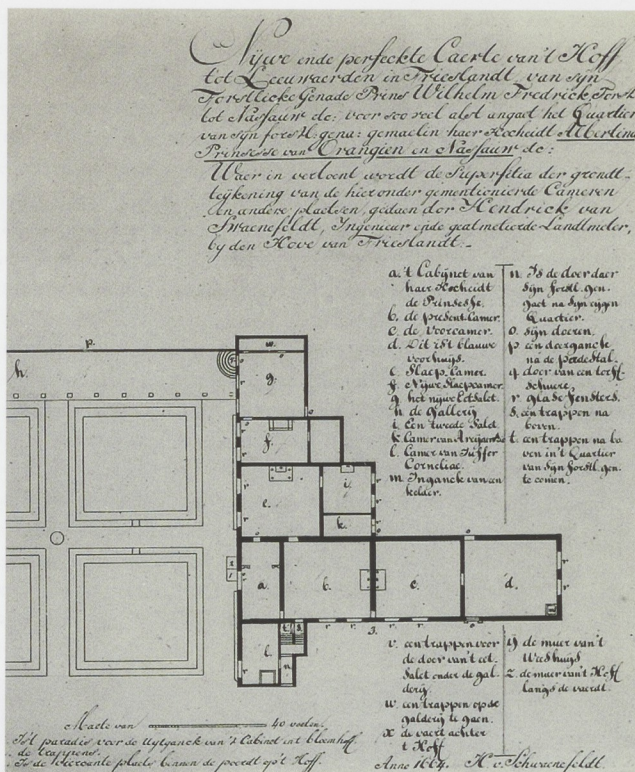 Nÿwe ende perfeckte Caerte van't Hoff
tot Leeuwaerden in Frieslandt, van sÿn
Forstlicke Genade Prins Wilhelm Fredrick, Forst
tot Nassauw &c: voor soo veel als angaet het Quartier
van sÿn forstl: gena: gemaelin haer Hocheidt Albertina
Prinsesse van Orangien en Nassauw &c:
Waer in vertoont wordt de Superfitia der grondt-
teÿkening van de hier onder gementionierde Cameren
en andere plaetsen, gedaen dor Hendrick van
Swaenefeldt, Ingenieur ende geatmeteerde Landtmeter,
bÿ den Hove van Frieslandt.
a. 't Cabÿnet van
haer Hocheidt
de Prinsesse.
b. de present Camer.
c. de voorcamer.
d. Dit is't blauwe
voorhuÿs.
e. Slaep Camer.
f. Nÿwe Slaepcamer.
g. het nÿwe Eet Salet.
h. de Gallerÿ
i. Een tweede Salet
k. Camer van
l. Camer van Juffer
Corneliae.
m. Inganck van een
kelder.
n. Is de door daer
sÿn forstl. gen.
gaet na sÿn eÿgen
Quartier.
o. sÿn doeren.
p. een deurganck
na de
q. doer van een torff-
schuere.
r. glase fensters.
s. een trappen na
boven.
t. een trappen na bo
ven in't Quartier
van sÿn forstl. gen.
te comen.
p.
w.
h.
g.
f.
e.
i.
k.
a.
b.
c.
d.
l.
t.
s.
n
m
r.
o
3.
v. een trappen voor
de door van't eet
salet onder de gal
derÿ.
w. een trappen op de
galderÿ te gaen.
x de vaert achter
't Hoff
y de muer van't
Weeshuÿs
z. de muer van't Hoff
langs de vaerdt.
Maete van 40 voeten.
Ist paradis voor de uÿtganck van 't Cabinet int bloemhoff.
de trappens.
Is de plaets binnen de poordt op't Hoff.
Anno 1664. H v: Schwaenefeldt.